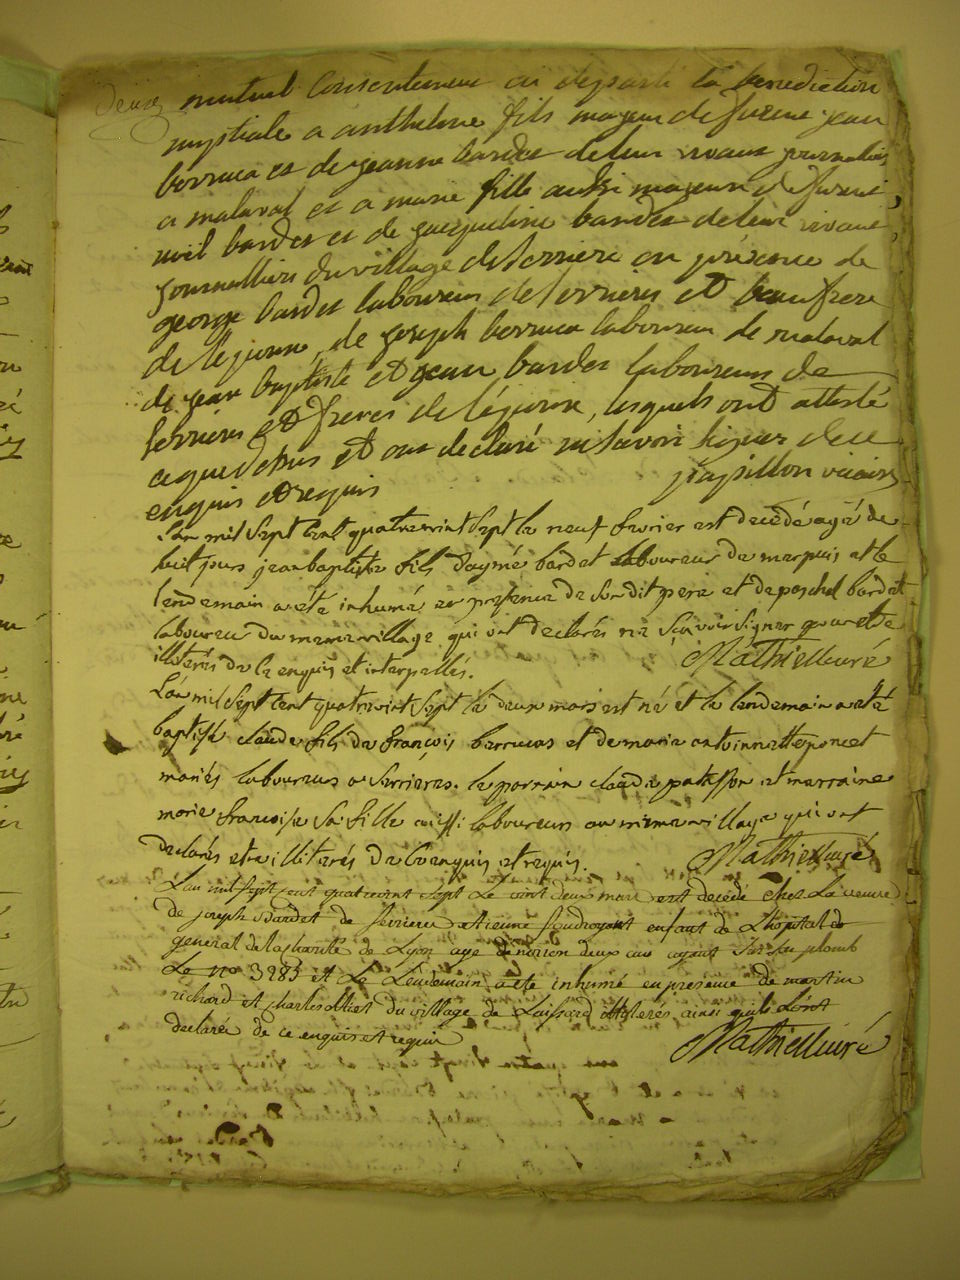 Deux
mutuel consentement ai départi la benediction
nuptiale a anthelme fils majeur de furent jean
berruca et de jeanne bardet de leur vivant journaliers
a malaval et a marie fille aussi majeure de furent
bardet et de jacqueline bardet de leur vivant
journalliers du village de serriere en présence de
george bardet laboureur de serrieres et beaufrere
de l'épouse, de joseph berruca laboureur de malaval
de jean baptiste et jean bardet laboureurs de
serrieres et freres de l'épouse, lesquels ont attesté
ce que dessus et ont declaré ni savoir signer de ce
enquis et requis papillon vicaire
L'an mil sept cent quatrevint sept le neuf fevrier est decédé agé de
huit jours jean baptiste fils d'aymé bardet laboureur de marpuis et le
lendemain a été inhumé en presence de son dit pere et de paschal bardet
laboureur du meme village qui ont declarés ne sçavoir signer pour etre
illiterés de ce enquis et interpellés. Mathieu curé
L'an mil sept cent quatrevint sept le deux mars est né et le lendemain a eté
baptisé claude fils de françois berrucas et de marie antoinette poncet
mariés laboureurs a serrieres. le parrain claude et marraine
marie françoise sa fille aussi laboureurs au meme village qui ont
declarés etre illiterés de ce enquis et requis. Mathieu curé
L'an mil sept cent quatrevint sept Le vint deux mars est decedé chez La veuve
de joseph Bardet de serriere etienne foudroyant enfant de L'hopital
general de la charité de Lyon age d'environ deux ans ayant sur son plomb
Le n° 3285 et Le Lendemain a été inhumé en presence de martin
richard et charles olliet du village de Laissard illiterés ainsi qu'ils L'ont
declaré de ce enquis et requis Mathieu curé